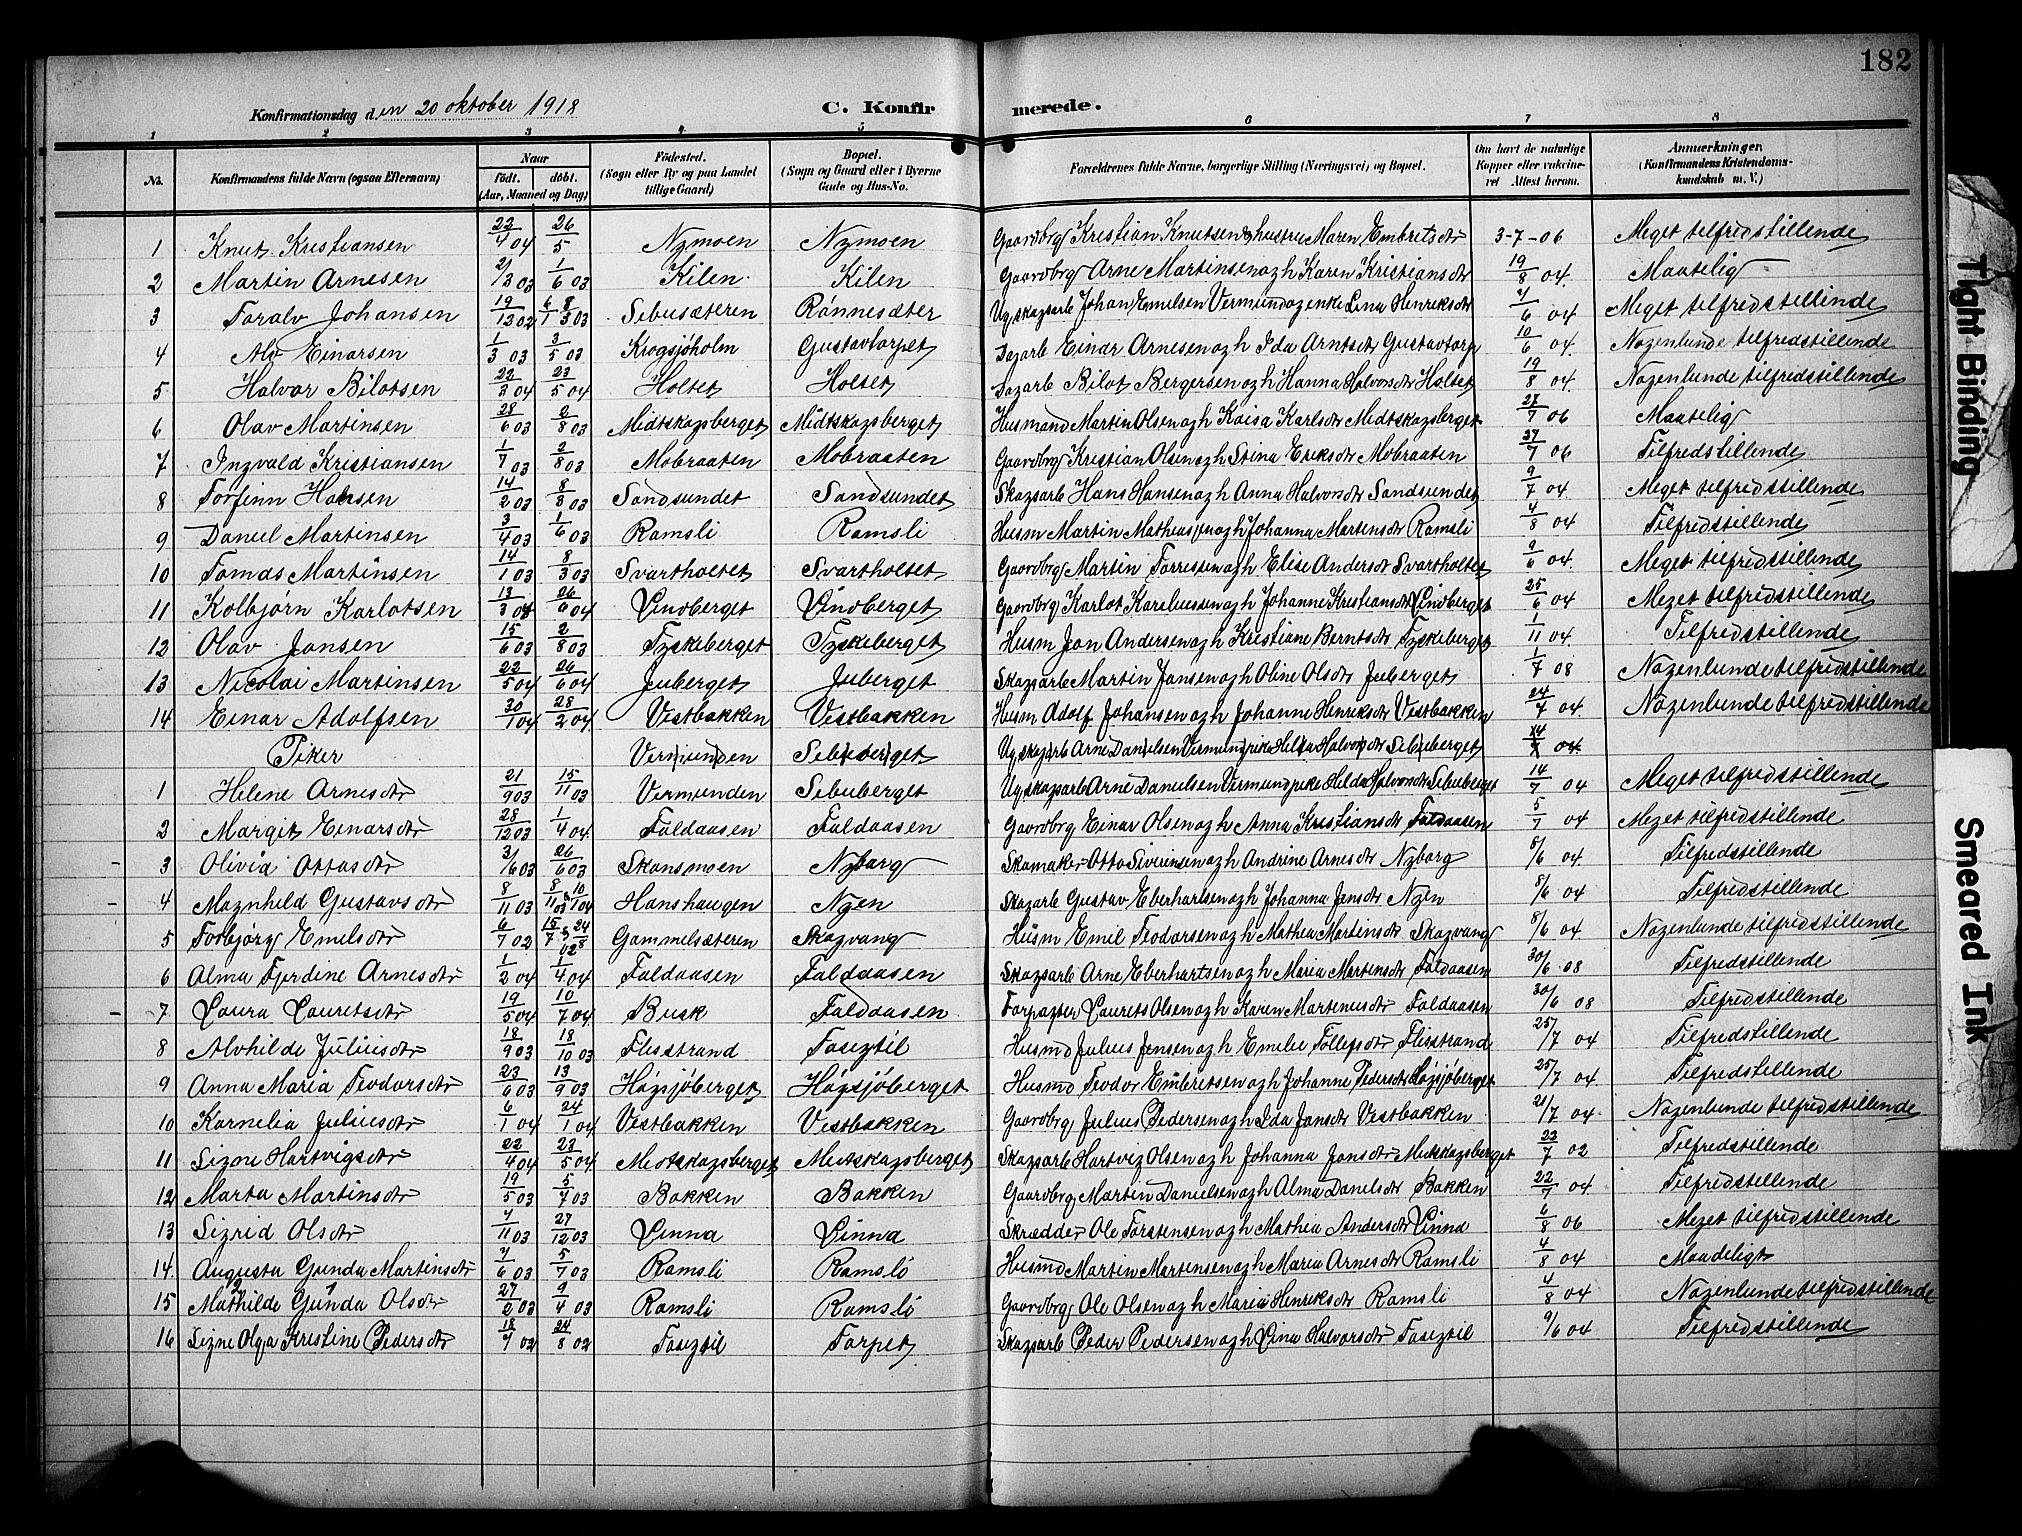 182
Konfirmationsdag den 20 oktober 1918 C. Konfirmerede.
1 2 3 4 5 6 7 8
No. Konfirmandens fulde Navn (ogsaa Efternavn) Naar født. døbt. (Aar, Maaned og Dag) Fødested. (Sogn eller By og paa Landet tillige Gaard) Bopæl. (Sogn og Gaard eller i Byerne Gade og Hus-No.) Forældrenes fulde Navne, borgerlige Stilling (Næringsvei) og Bopæl. Om havt de naturlige Kopper eller vakcineret. Attest herom. Anmærkninger. (Konfirmandens Kristendomskundskab m. V.)
1 Knut Kristiansen 22/4 04 26/5 Nymoen Nymoen Gaardbrg Kristian Knutsen og hustru Maren Embretsdtr 3-7-06 Meget tilfredstillende
2 Martin Arnesen 2/3 03 1/6 03 Kilen Kilen Gaardbrg Arne Martinsen og h Karen Kristiansdtr 19/8 04 Maatelig
3 Toralv Johansen 19/12 02 8/3 03 Sebusæteren Rønnesæter Ug skogsarb Johan Emilsen Vermund og enke Lina Henriksdtr 4/6 04 Meget tilfredstillende
4 Alv Einarsen 1/3 03 3/5 03 Krogsjøholm Gustavtorpet Dagarb Einar Arnesen og h Ida Arntsdtr Gustavtorp 10/6 04 Nogenlunde tilfredstillende
5 Halvar Bilotsen 22/3 04 23/5 04 Holtet Holtet Dagarb Bilot Bergersen og h Hanna Halvorsdtr Holtet 19/8 04 Nogenlunde tilfredstillende
6 Olav Martinsen 28/6 03 2/8 03 Midtskogsberget Midtskogsberget Husmand Martin Olsen og h Kaisa Karlsdtr Midtskogsberget 27/7 06 Maatelig
7 Ingvald Kristiansen 1/7 03 2/8 03 Mobraaten Mobraaten Gaardbrg Kristian Olsen og h Stina Eriksdtr Mobraaten 27/7 06 Tilfredstillende
8 Torfinn Hansen 14/2 03 8/3 03 Sandsundet Sandsundet Skogsarb Hans Hansen og h Anna Halvorsdtr Sandsundet 9/7 04 Meget tilfredstillende
9 Daniel Martinsen 3/4 03 1/6 03 Ramsli Ramsli Husm Martin Mathiassen og h Johanna Martensdtr Ramsli 4/8 04 Tilfredstillende
10 Tomas Martinsen 14/1 03 8/3 03 Svartholtet Svartholtet Gaardbrg Martin Torressen og h Elise Andersdtr Svartholtet 9/6 04 Meget tilfredstillende
11 Kolbjørn Karlotsen 13/3 04 26/6 04 Lindberget Lindberget Gaardbrg Karlot Kareliussen og h Johanne Kristiansdtr Lindberget 25/6 04 Meget tilfredstillende
12 Olav Jansen 15/6 03 2/8 03 Tyskeberget Tyskeberget Husm Jan Andersen og h Kristiane Berntsdtr Tyskeberget 1/11 04 Tilfredstillende
13 Nicolai Martinsen 22/5 04 26/6 04 Juberget Juberget Skogsarb Martin Jansen og h Oline Olsdtr Juberget 1/7 08 Nogenlunde tilfredstillende
14 Einar Adolfsen 30/1 04 28/2 04 Vestbakken Vestbakken Husm Adolf Johansen og h Johanne Henriksdtr Vestbakken 24/7 04 Nogenlunde tilfredstillende
Piker Vermunden Sebuberget Ug skogsarb Arne Danielsen Vermund pike Helda Halvorsdtr Sebuberget 14/7 04
1 Helene Arnesdtr 21/9 03 15/11 03 Vermunden Sebuberget Ug skogsarb Arne Danielsen Vermund pike Helda Halvorsdtr Sebuberget 14/7 04 Meget tilfredstillende
2 Margit Einarsdtr 28/12 03 1/4 04 Faldaasen Faldaasen Gaardbrg Einar Olsen og h Anna Kristiansdtr Faldaasen 5/7 04 Meget tilfredstillende
3 Olivia Ottosdtr 3/6 03 26/6 03 Skansmoen Nyborg Skomaker Otto Siverinsen og h Andrine Arnesdtr Nyborg 8/6 04 Tilfredstillende
4 Magnhild Gustavsdtr 8/11 03 8/11 03 & 10/1 04 Hanshaugen Nyen Skogarb Gustav Eberhartsen og h Johanna Jensdtr Nyen 8/6 04 Tilfredstillende
5 Torbjørg Emilsdtr 6/7 02 13/7 & 24/8 02 Gammelsæteren Skogvang Husm Emil Teodorsen og h Mathea Martinsdtr Skogvang 8/6 04 Nogenlunde tilfredstillende
6 Alma Fjerdine Arnesdtr 1/2 04 1/4 04 Faldaasen Faldaasen Skogsarb Arne Eberhartsen og h Maria Martensdtr Faldaasen 30/6 08 Tilfredstillende
7 Laura Lauretsdtr 19/5 04 10/7 04 Busk Faldaasen Forpagter Laurets Olsen og h Karen Martenusdtr Faldaasen 30/6 08 Tilfredstillende
8 Alvhilde Juliusdtr 18/9 03 18/10 03 Flisstrand Fosegtil Husmd Julius Jensen og h Emelie Tollefsdtr Flisstrand 25/7 04 Tilfredstillende
9 Anna Maria Teodorsdtr 23/6 03 13/9 03 Høgsjøberget Høgsjøberget Husmd Teodor Embretsen og h Johanne Pedersdtr Høgsjøberget 25/7 04 Tilfredstillende
10 Karnelia Juliusdtr 6/1 04 24/1 04 Vestbakken Vestbakken Gaardbrg Julius Pedersen og h Ida Jansdtr Vestbakken 21/7 04 Nogenlunde tilfredstillende
11 Signe Hartvigsdtr 22/4 04 23/5 04 Midtskogsberget Midtskogsberget Skogsarb Hartvig Olsen og h Johanna Jonsdtr Midtskogsberget 23/7 02 Tilfredstillende
12 Marta Martinsdtr 19/5 03 5/7 03 Bakken Bakken Gaardbrg Martin Danielsen og h Alma Danelsdtr Bakken 22/7 04 Tilfredstillende
13 Sigrid Olsdtr 7/11 03 27/12 03 Linna Linna Skrædder Ole Torstensen og h Mathea Andersdtr Linna 6/8 06 Meget tilfredstillende
14. Augusta Gunda Martinsdtr 7/6 03 5/7 03 Ramsli Ramsli Husmd Martin Martensen og h Maria Arnesdtr Ramsli 4/8 04 Maadeligt
15 Mathilde Gunda Olsdtr 27/2 03 9/4 03 Ramsli Ramsli Gaardbrg Ole Olsen og h Maria Henriksdtr Ramsli 4/8 04 Nogenlunde tilfredstillende
16 Signe Olga Kristine Pedersdtr 18/7 02 24/8 02 Fosegtil Torpet Skogsarb Peder Pedersen og h Lina Halvorsdtr Fosegtil 9/6 04 Tilfredstillende
Tight Binding
Smeared Ink